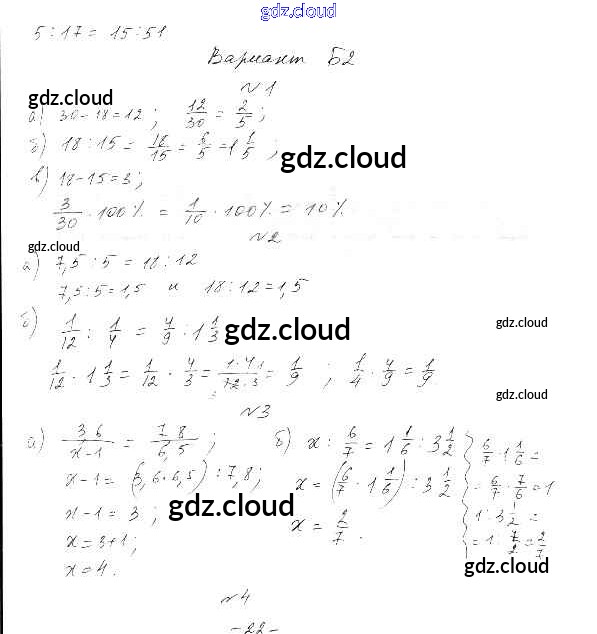 gdz.cloud
5 : 17 = 15 : 51
Вариант Б2
№1
gdz.cloud
а) 30-18=12 ; 12/30 = 2/5 ;
б) 18 : 15 = 18/15 = 6/5 = 1 1/5 ;
gdz.cloud
в) 18-15=3 ;
3/30 · 100% = 1/10 · 100% = 10%
№2
gdz.cloud
а) 7,5 : 5 = 18 : 12
7,5 : 5 = 1,5 и 18 : 12 = 1,5
б) 1/12 : 1/4 = 4/9 : 1 1/3
gdz.cloud
gdz.cloud
1/12 · 1 1/3 = 1/12 · 4/3 = 1·4/12·3 = 1/9 ; 1/4 · 4/9 = 1/9
gdz.cloud
№3
а) 3,6/x-1 = 7,8/6,5 ; б) x : 6/7 = 1 1/6 : 3 1/2 6/7 · 1 1/6 =
x-1 = (3,6·6,5) : 7,8 ; x = (6/7 · 1 1/6) : 3 1/2 = 6/7 · 7/6 = 1
x-1 = 3 ; x = 2/7 . 1 : 3 1/2 =
gdz.cloud
x = 3+1 ; = 1 · 7/2 = 2/7
x = 4 .
gdz.cloud
№4
-22-